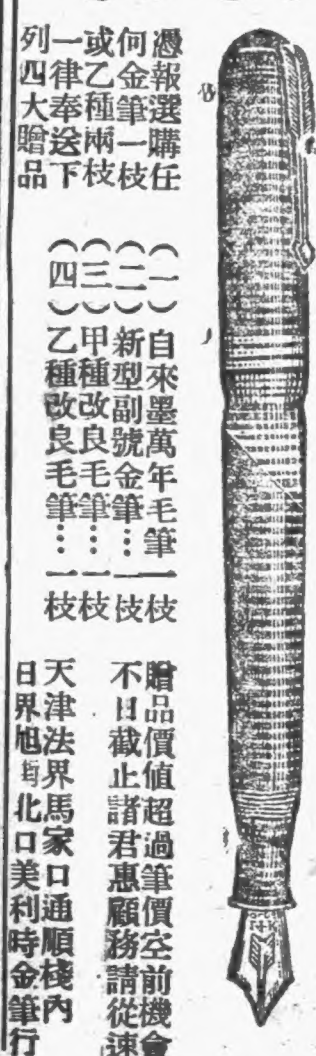 憑報選購任
何金筆一枝
或乙種兩枝
一律奉送下
列四大贈品
（一）自來墨萬年毛筆一枝
（二）新型副號金筆…一枝
（三）甲種改良毛筆…一枝
（四）乙種改良毛筆…一枝
贈品價値超過筆價空前機會
不日截止諸君惠顧務請從速
天津法界馬家口通順棧內
日界旭街北口美利時金筆行
14K